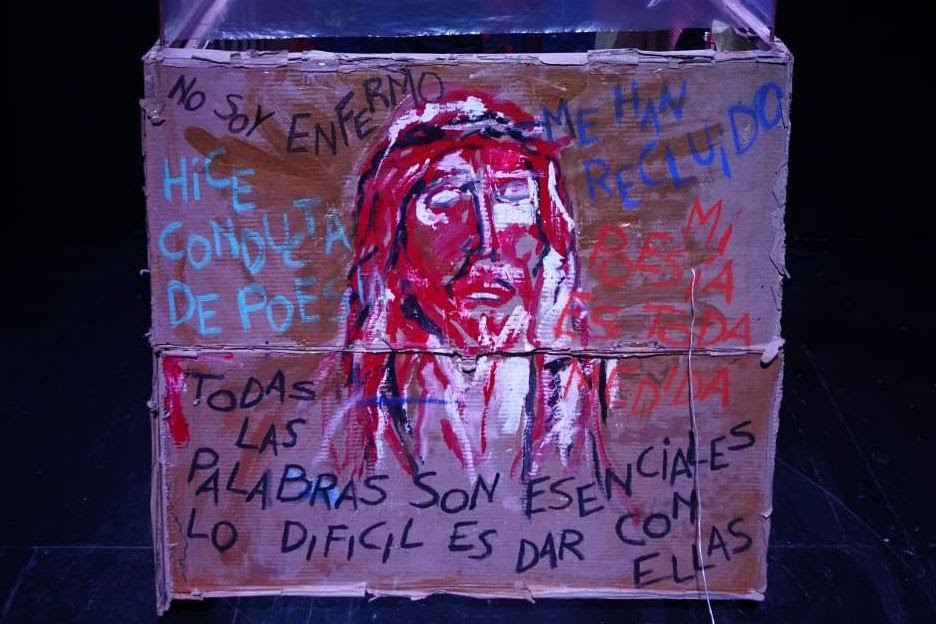 NO SOY
ENFERMO
ME HAN
RECLUIDO
HICE
CONDUCTA
DE POESI
MI
POESIA
ES TODA
TODAS
LAS
PALABRAS SON ESENCIALES
LO DIFICIL ES DAR CON
ELLAS